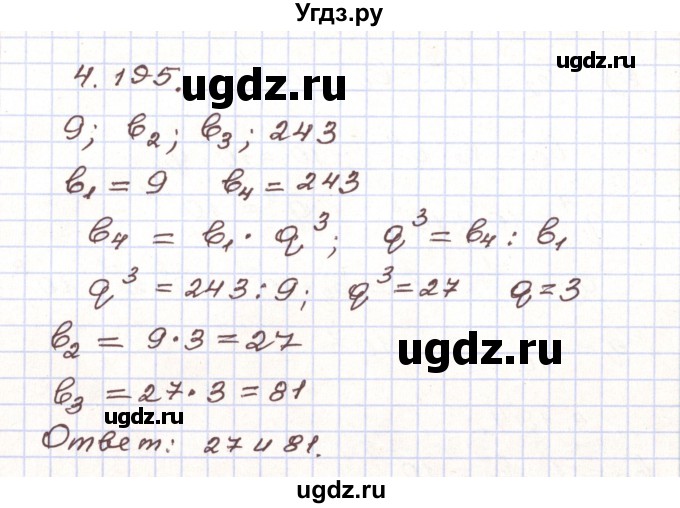 Угдз.ру
ugdz.ru
4.195.
ugdz.ru
9; b₂; b₃; 243
b₁ = 9 b₄ = 243
b₄ = b₁ · q³; q³ = b₄ : b₁
q³ = 243 : 9; q³ = 27 q = 3
b₂ = 9 · 3 = 27
ugdz.ru
b₃ = 27 · 3 = 81
ugdz.ru
Ответ: 27 и 81.
ugdz.ru